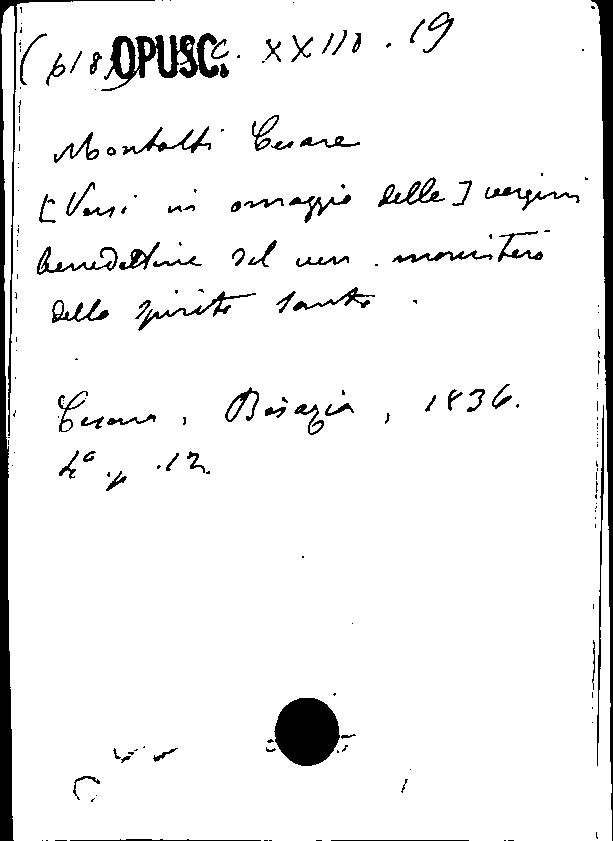 (618) OPUSC. C. XXIII. 19
Montalti Cesare
[Versi in omaggio delle] vergini
benedettine del ven. monistero
dello spirito santo.
Cesena, Bisazia, 1836.
4° p. 12.